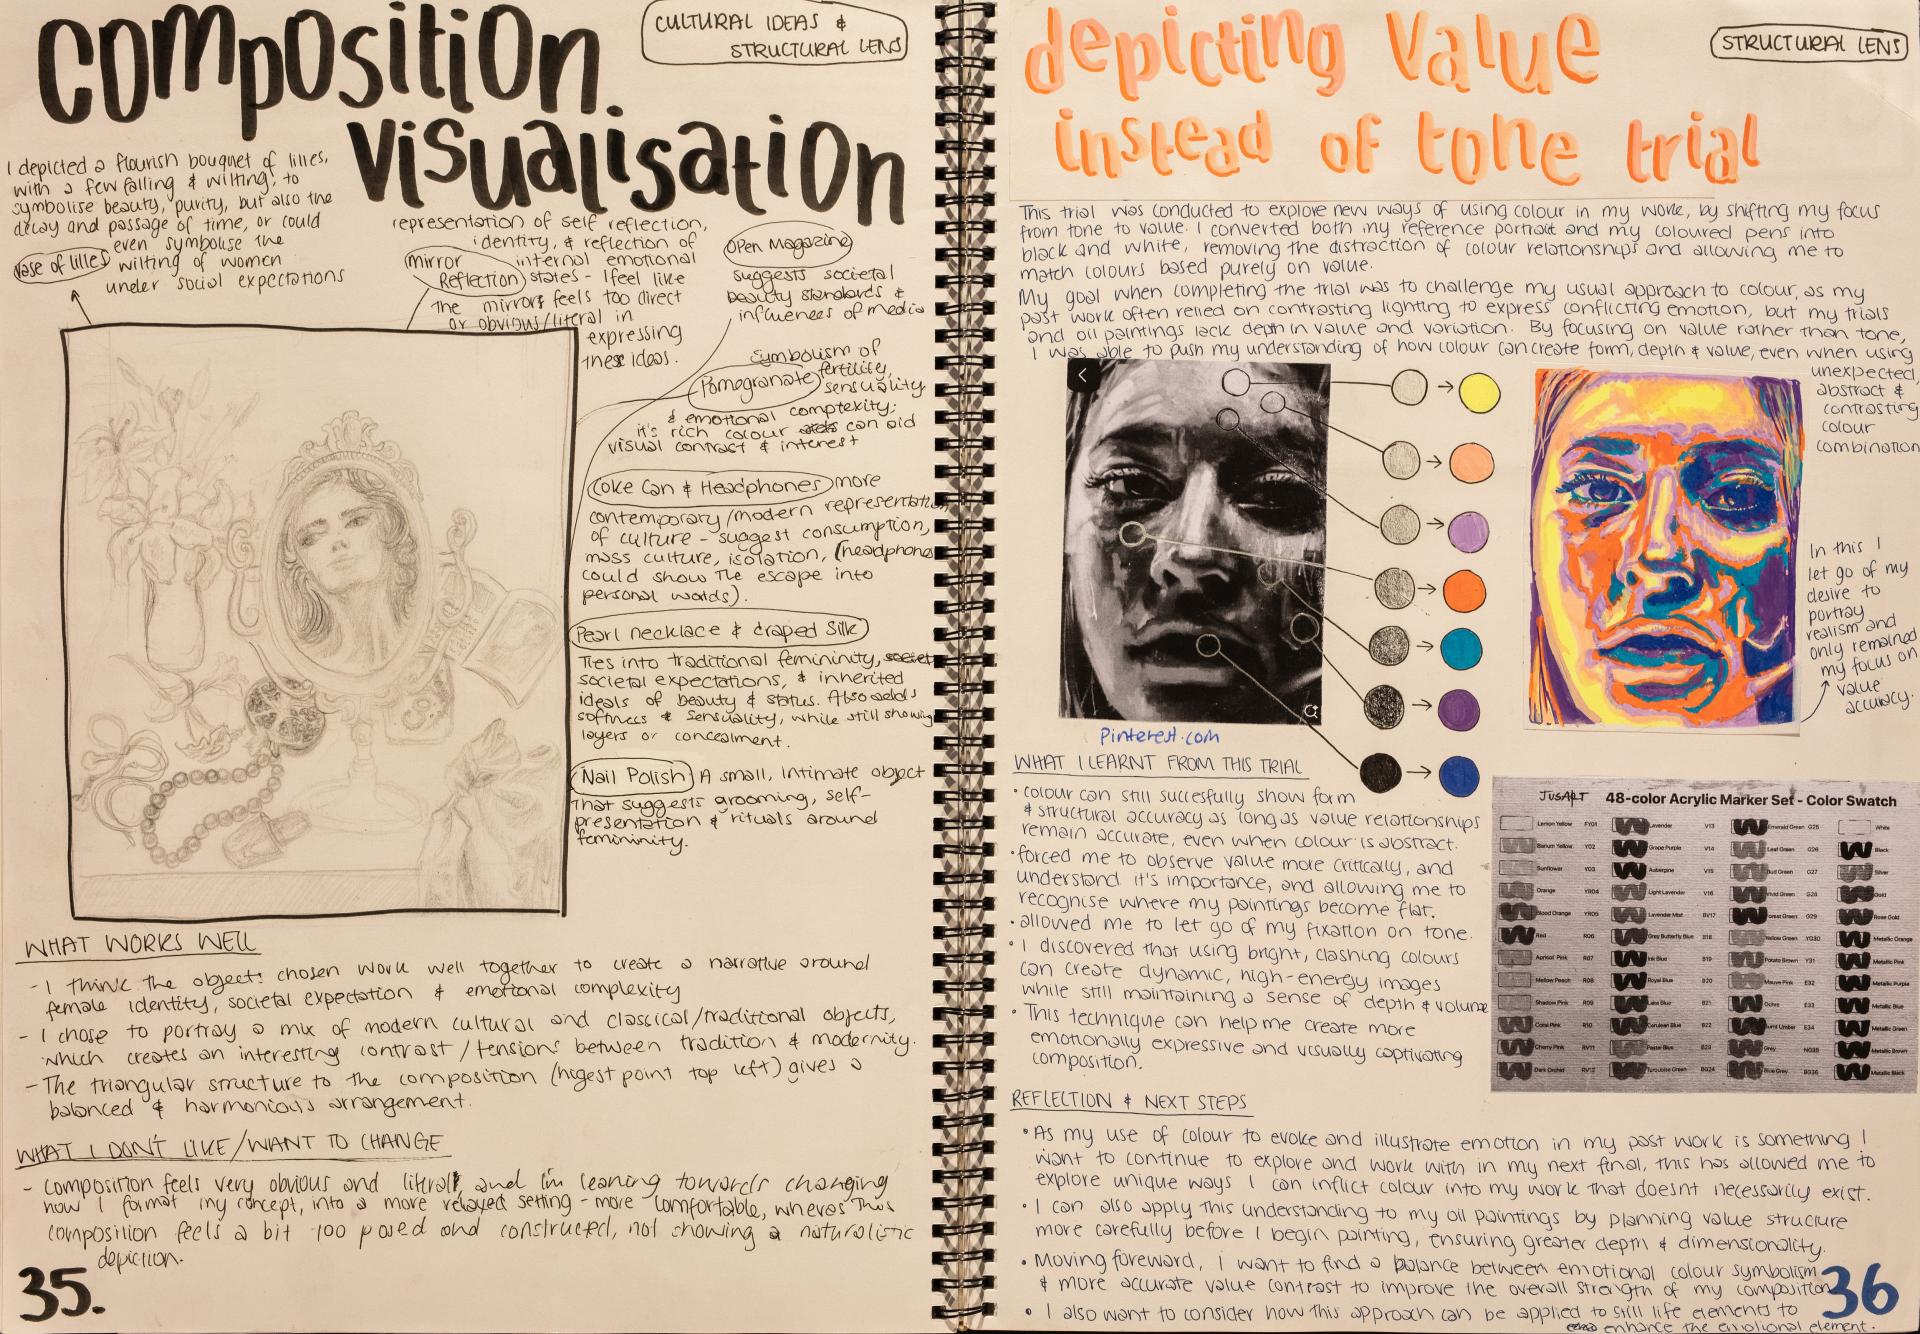 composition.
visualisation
CULTURAL IDEAS &
STRUCTURAL LENS
I depicted a flourish bouquet of lilies,
with a few falling & wilting, to
symbolise beauty, purity, but also the
decay and passage of time, or could
even symbolise the
wilting of women
under social expectations
vase of lilies
representation of self reflection,
identity, & reflection of
internal emotional
states - I feel like
the mirror feels too direct
or obvious/literal in
expressing
these ideas.
mirror
Reflection
Open Magazine
suggests societal
beauty standards &
influences of media
Symbolism of
Pomogranate fertility,
sensuality
& emotional complexity;
it's rich colour can aid
visual contrast & interest
Coke Can & Headphones more
contemporary/modern representation
of culture - suggest consumption,
mass culture, isolation, (headphones
could show the escape into
personal worlds).
Pearl necklace & draped Silk
Ties into traditional femininity, societ
societal expectations, & inherited
ideals of beauty & status. Also adds
softness & sensuality, while still showing
layers or concealment.
Nail Polish A small, intimate object
that suggests grooming, self-
presentation & rituals around
femininity.
WHAT WORKS WELL
- I think the objects chosen work well together to create a narrative around
female identity, societal expectation & emotional complexity
- I chose to portray a mix of modern cultural and classical/traditional objects,
which creates an interesting contrast/tensions between tradition & modernity.
- The triangular structure to the composition (higest point top left) gives a
balanced & harmonious arrangement.
WHAT I DON'T LIKE/WANT TO CHANGE
- composition feels very obvious and literal and I'm leaning towards changing
how I format my concept, into a more relaxed setting - more comfortable, wheras this
composition feels a bit too posed and constructed, not showing a naturalistic
depiction.
35.
depicting value
instead of tone trial
STRUCTURAL LENS
This trial was conducted to explore new ways of using colour in my work, by shifting my focus
from tone to value. I converted both my reference portrait and my coloured pens into
black and white, removing the distraction of colour relationships and allowing me to
match colours based purely on value.
My goal when completing the trial was to challenge my usual approach to colour, as my
past work often relied on contrasting lighting to express conflicting emotion, but my trials
and oil paintings lack depth in value and variation. By focusing on value rather than tone,
I was able to push my understanding of how colour can create form, depth & value, even when using
unexpected,
abstract &
contrasting
colour
combination
In this I
let go of my
desire to
portray
realism and
only remained
my focus on
value
accuracy.
Pinterest.com
WHAT I LEARNT FROM THIS TRIAL
• colour can still succesfully show form
& structural accuracy as long as value relationships
remain accurate, even when colour is abstract.
• forced me to observe value more critically, and
understand it's importance, and allowing me to
recognise where my paintings become flat.
• allowed me to let go of my fixation on tone.
• I discovered that using bright, clashing colours
can create dynamic, high-energy images
while still maintaining a sense of depth & volume
• This technique can help me create more
emotionally expressive and visually captivating
composition.
JUSART 48-color Acrylic Marker Set - Color Swatch
Lemon Yellow FY01 Lavender V13 Emerald Green G25 White
Barium Yellow Y02 Grape Purple V14 Leaf Green G26 Black
Sunflower Y03 Aubergine V15 Bud Green G27 Silver
Orange YR04 Light Lavender V16 Vivid Green G28 Gold
Blood Orange YR05 Lavender Mist BV17 Forest Green G29 Rose Gold
Red R06 Grey Butterfly Blue B18 Yellow Green YG30 Metallic Orange
Apricot Pink R07 Ink Blue B19 Potato Brown Y31 Metallic Pink
Mellow Peach R08 Royal Blue B20 Mauve Pink E32 Metallic Purple
Shadow Pink R09 Lake Blue B21 Ochre E33 Metallic Blue
Coral Pink R10 Cerulean Blue B22 Burnt Umber E34 Metallic Green
Cherry Pink RV11 Pastel Blue B23 Grey NG35 Metallic Brown
Dark Orchid RV12 Turquoise Green BG24 Blue Grey BG36 Metallic Black
REFLECTION & NEXT STEPS
• As my use of colour to evoke and illustrate emotion in my past work is something I
want to continue to explore and work with in my next final, this has allowed me to
explore unique ways I can inflict colour into my work that doesnt necessarily exist.
• I can also apply this understanding to my oil paintings by planning value structure
more carefully before I begin painting, ensuring greater depth & dimensionality.
• Moving foreward, I want to find a balance between emotional colour symbolism
& more accurate value contrast to improve the overall strength of my composition
• I also want to consider how this approach can be applied to still life elements to
enhance the emotional element.
36